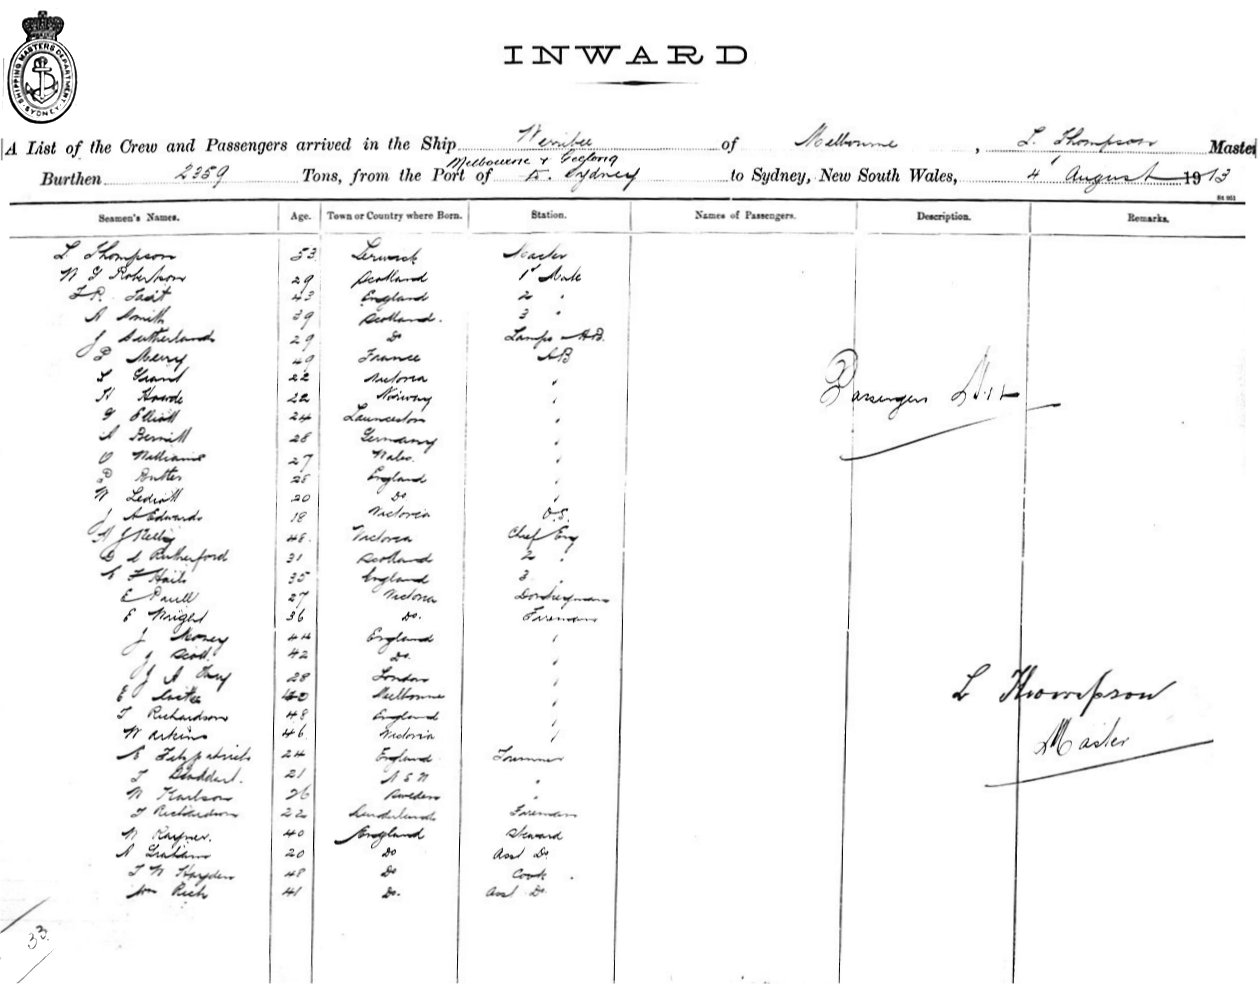 SHIPPING MASTERS DEPARTMENT SYDNEY
INWARD
A List of the Crew and Passengers arrived in the Ship Werribee of Melbourne, L. Thompson Master
Burthen 2359 Tons, from the Port of Melbourne & Geelong to Sydney to Sydney, New South Wales, 4 August 1913
Seamen's Names. Age. Town or Country where Born. Station. Names of Passengers. Description. Remarks.
L. Thompson 53 Lerwick Master
W G Robertson 29 Scotland 1st Mate
43 England 2 "
A Smith 39 Scotland. 3 "
J Sutherland 29 Do Lamps AB.
P Merry 49 France AB
L Grant 22 Victoria "
22 Norway "
G Elliott 24 Launceston "
28 Germany "
O Williams 27 Wales. "
P 28 England "
W 20 Do "
J A Edwards 18 Victoria O.S.
48. Victoria Chief Eng
D Rutherford 31 Scotland 2 "
35 England 3 "
E Paull 27 Victoria Donkeyman
E Wright 36 Do. Fireman
J 44 England "
J Scott 42 Do. "
J A 28 London "
E 40 Melbourne "
T Richardson 48 England "
W 46 Victoria "
Fitzpatrick 24 England Trimmer
T 21 N S W "
W Karlson 26 Sweden "
T Richardson 22 Sunderland Fireman
W Rayner. 40 England Steward
A Graham 20 Do Asst Do.
T W Hayden 48 Do Cook
Wm Rich 41 Do. Asst Do
Passengers Nil
L Thompson
Master
33